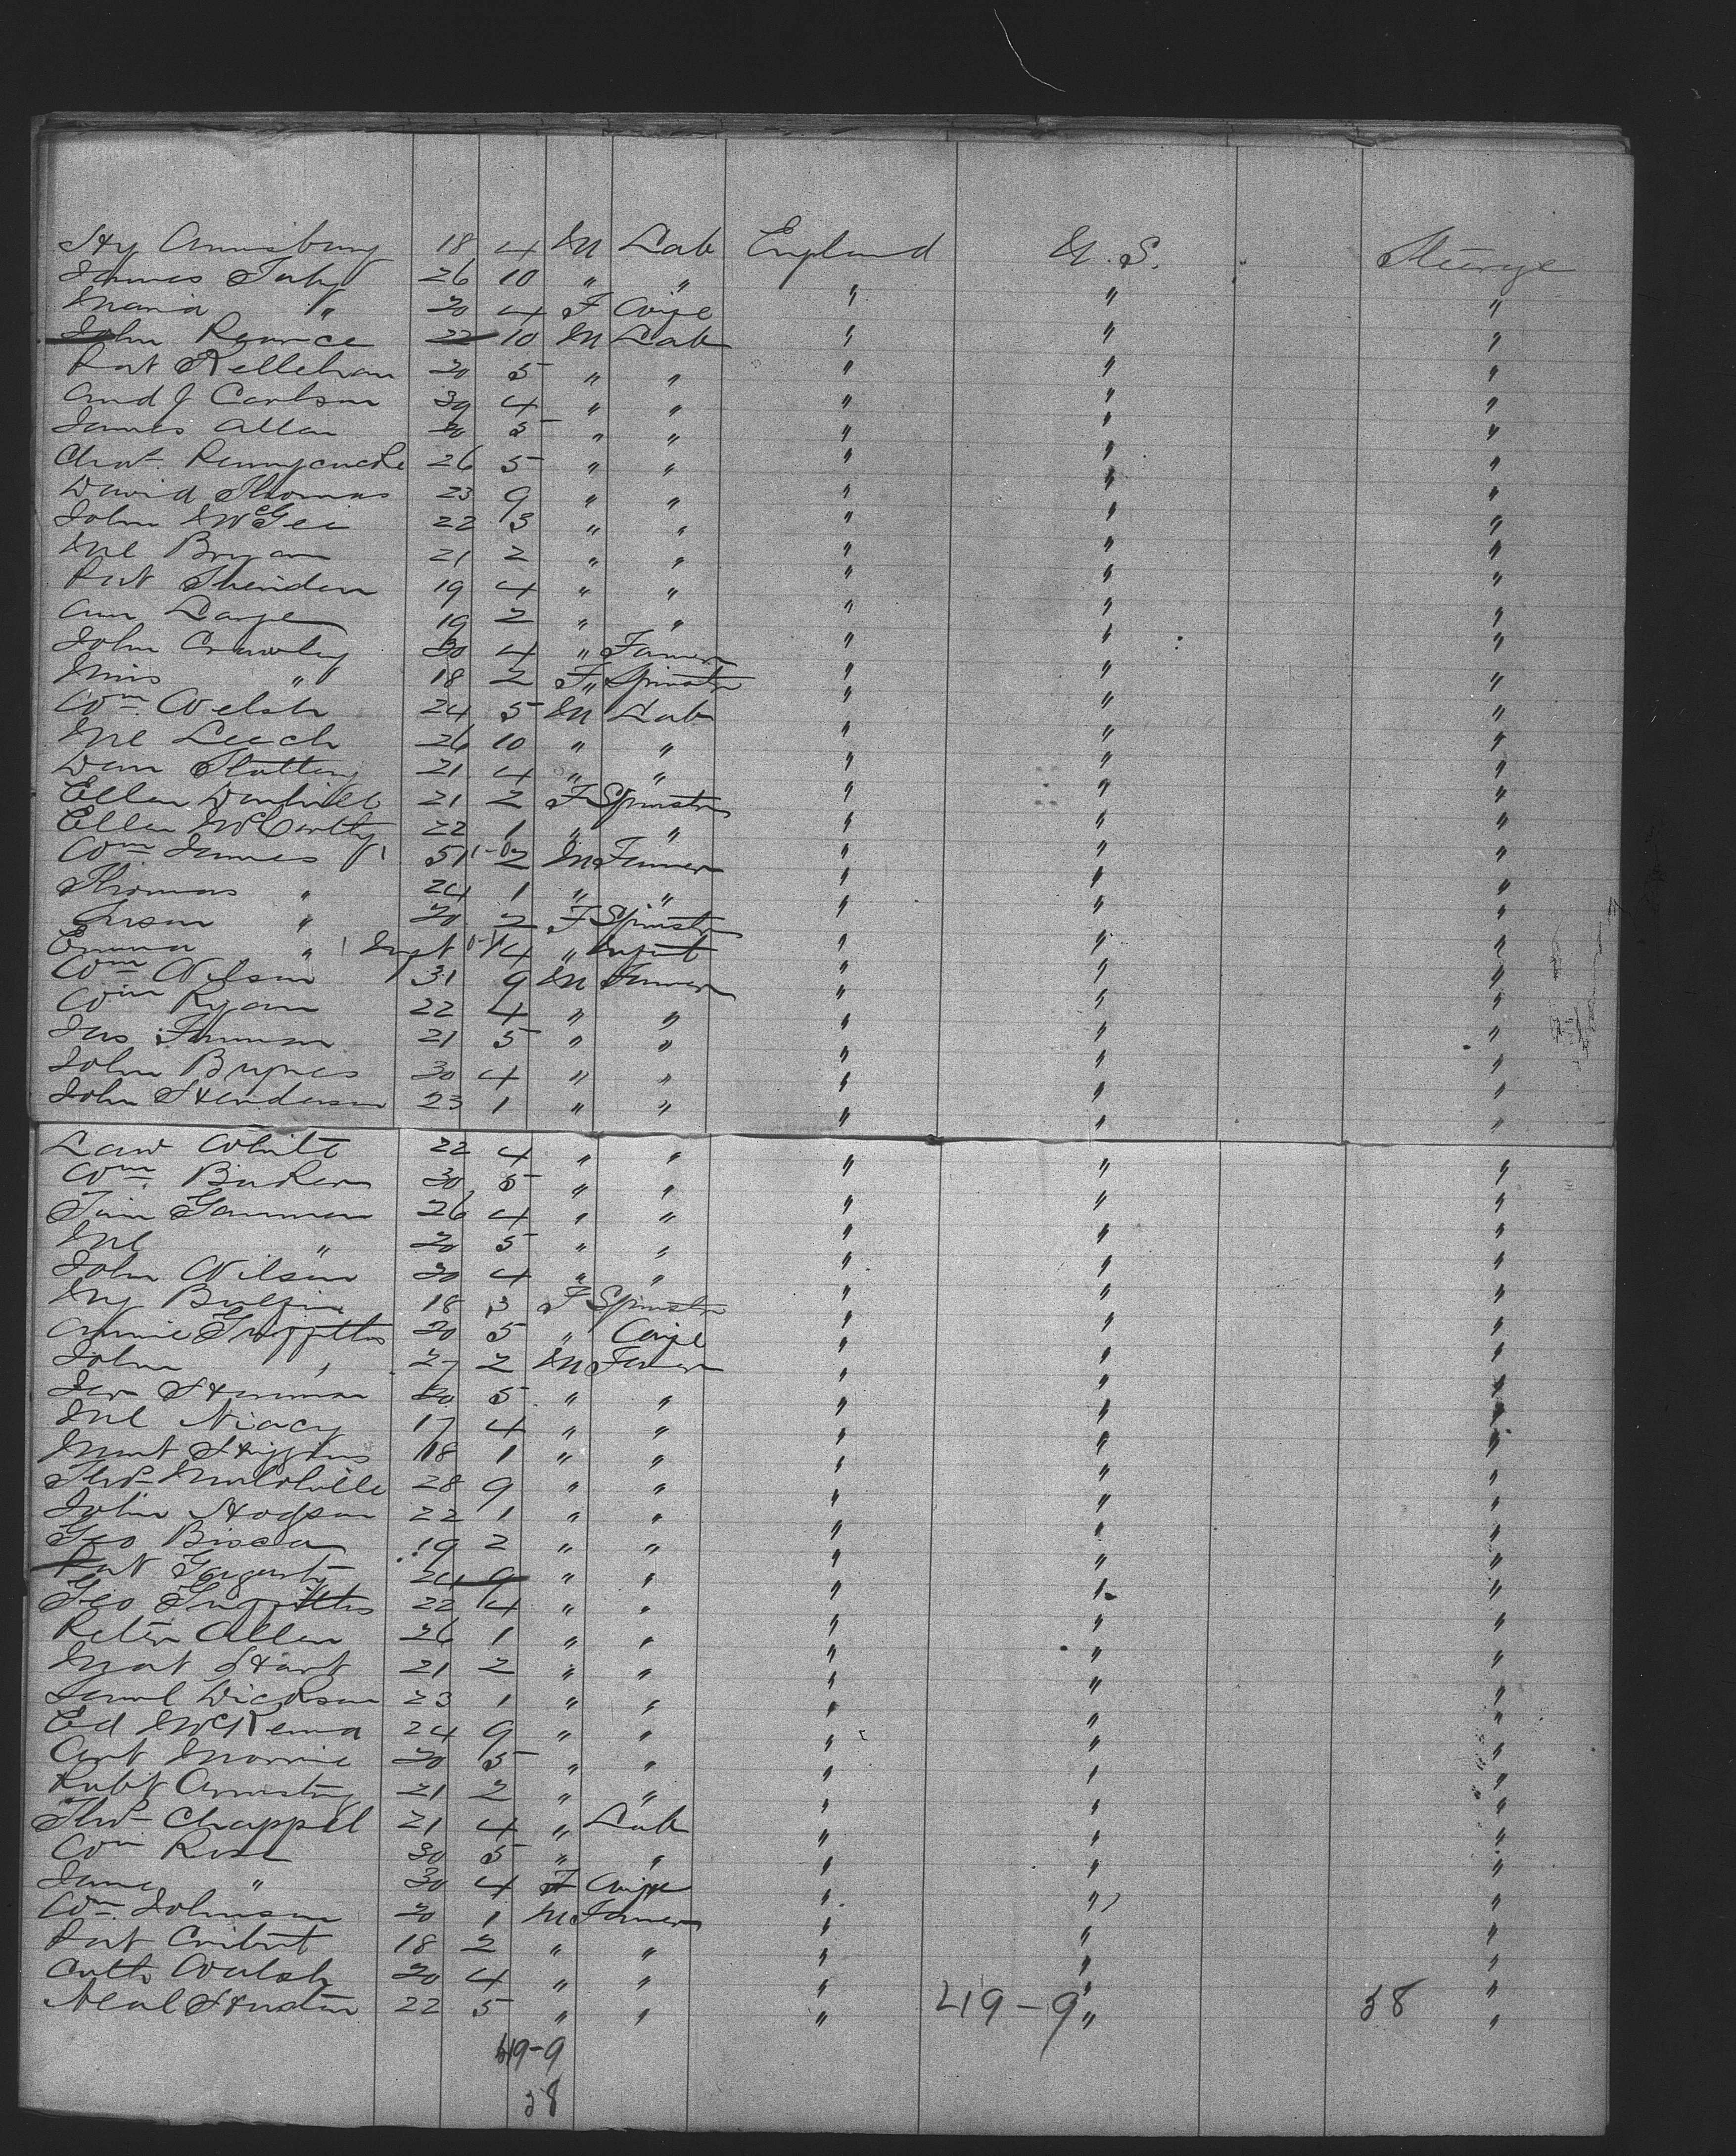 Hy Amesbury 18 4 M Lab England U.S. Steerage
James Tuby 26 10 " " " " "
Maria " 20 4 F Wife " " "
John Pearce 22 10 M Lab " " "
Pat Kellehan 20 5 " " " " "
And J Carlson 39 4 " " " " "
James Allan 20 5 " " " " "
Chas. Pennycucke 26 5 " " " " "
David Thomas 23 9 " " " " "
John McGee 22 3 " " " " "
Ml Bryan 21 2 " " " " "
Pat Sheridan 19 4 " " " " "
Ann Large 19 2 " " " " "
John Crawley 30 4 " Farmer " " "
Miss " 18 2 F " Spinster " " "
Wm. Welsh 24 5 M Lab " " "
Ml Leech 26 10 " " " " "
Dan Slattery 21 4 " " " " "
Ellen 21 2 F Spinster " " "
Ellen McCarthy 22 1 " " " " "
Wm James 51 2 M Farmer " " "
Thomas " 24 1 " " " " "
" 20 2 F Spinster " " "
Emma " Inft 4 " Infant " " "
Wm Wilson 31 9 M Farmer " " "
Wm Ryan 22 4 " " " " "
Jas 21 5 " " " " "
John Byrnes 30 4 " " " " "
John Henderson 23 1 " " " " "
Law White 22 4 " " " " "
Wm. 30 5 " " " " "
Tim Gammon 26 4 " " " " "
Ml " 20 5 " " " " "
John Wilson 20 4 " " " " "
My Bulfin 18 3 F Spinster " " "
Annie Griffiths 20 5 " Wife " " "
John " 27 2 M Farmer " " "
20 5 " " " " "
Ml 17 4 " " " " "
Mart Higgins 18 1 " " " " "
Thos 28 9 " " " " "
John Hodgson 22 1 " " " " "
Geo 19 2 " " " " "
Pat Fogarty 24 9 " " " " "
Geo Griffiths 22 4 " " " " "
Peter Allen 26 1 " " " " "
Mat Hart 21 2 " " " " "
Saml Dickson 23 1 " " " " "
Ed McKenna 24 9 " " " " "
Art Morris 20 5 " " " " "
Robt Armstrong 21 2 " " " " "
Thos Chappel 21 4 " Lab " " "
Wm Rose 30 5 " " " " "
Jane " 30 4 F Wife " " "
Wm. Johnson 20 1 M Farmer " " "
Pat 18 2 " " " " "
Cath Walsh 20 4 " " " " "
Neal Huston 22 5 " " " 419-9 " 58 "
419-9
58